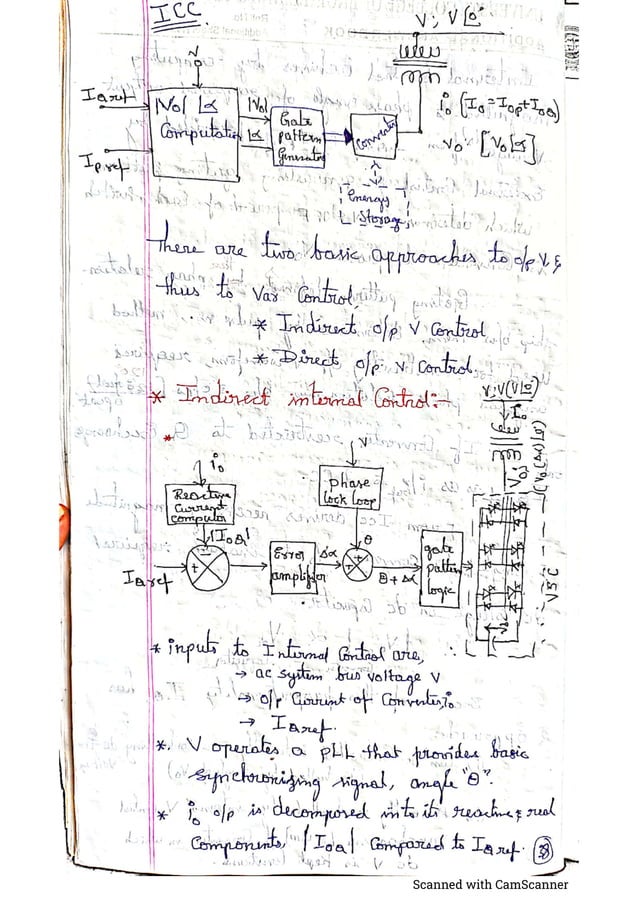 ICC.
V; V∠0°
v
IQref
|Vo| ∠α
Computation
|Vo|
∠α
Gate
pattern
Generator
Converter
io (Io = Iop + IoQ)
vo [Vo∠α]
Ipref
Energy
Storage
There are two basic approaches to o/p V, &
thus to Var Control.
* Indirect o/p V Control
* Direct o/p V Control.
* Indirect internal Control:-
V; V(V∠0°)
Io
io
V
Reactive
Current
Computer
phase
lock loop
Vo;
|IoQ|
θ
IQref
+
Error
amplifier
Δα
+
+
θ + Δα
gate
pattern
logic
VSC
* inputs to Internal Control are,
→ ac system bus voltage V
→ o/p Current of Converter, io
→ IQref.
*. V operates a PLL that provides basic
Synchronizing signal, angle "θ".
* io o/p is decomposed into its reactive & real
Components, |IoQ| Compared to IQref.
Scanned with CamScanner